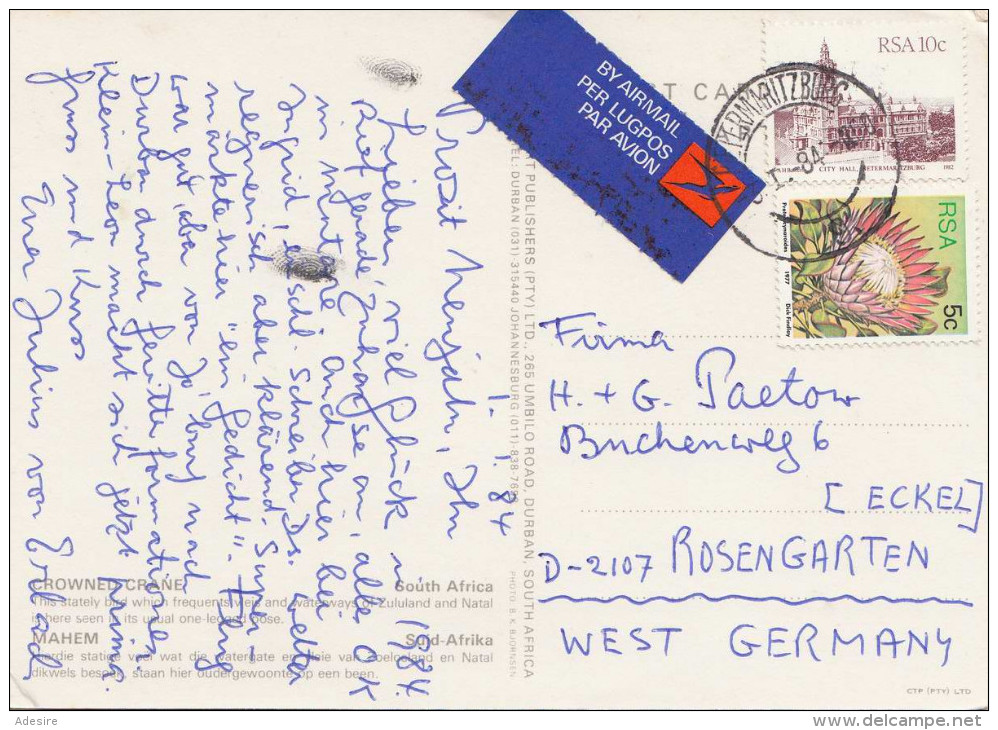 POST CARD
BY AIRMAIL
PER LUGPOS
PAR AVION
RSA 10c
CITY HALL, PIETERMARITZBURG 1982
PIETERMARITZBURG
84
RSA
5c
1977 Dick Findlay
Prosit Neujahr, Ihr
1. 1. 84
Lieben, viel Glück in 1984.
Rief gerade zuhause an, alles OK
in Auch hier bei
Ingrid, Schreiber, Ds. Wetter
regnerisch aber klärend. Super-
märkte hier "ein Gedicht". Flug
war gut, aber von Jo'burg nach
Durban durch Gewitterformationen.
Klein-Leon macht sich jetzt prima.
Gruss und Kuss
Euer Julius von
PUBLISHERS (PTY) LTD., 265 UMBILO ROAD, DURBAN, SOUTH AFRICA
TEL: DURBAN (031) 315440 JOHANNESBURG (011)-838-
PHOTO: B. K. BJORNSEN
CROWNED CRANE South Africa
This stately bird which frequents vleis and waterways of Zululand and Natal
is here seen in its usual one-legged pose.
MAHEM Suid-Afrika
Hierdie statige voël wat die watergate en vleie van Zoeloeland en Natal
dikwels besoek, staan hier oudergewoonte op een been.
Firma
H. + G. Paetow
Buchenweg 6
[ECKEL]
D-2107 ROSENGARTEN
WEST GERMANY
CTP (PTY) LTD
Adesire
delcampe.net